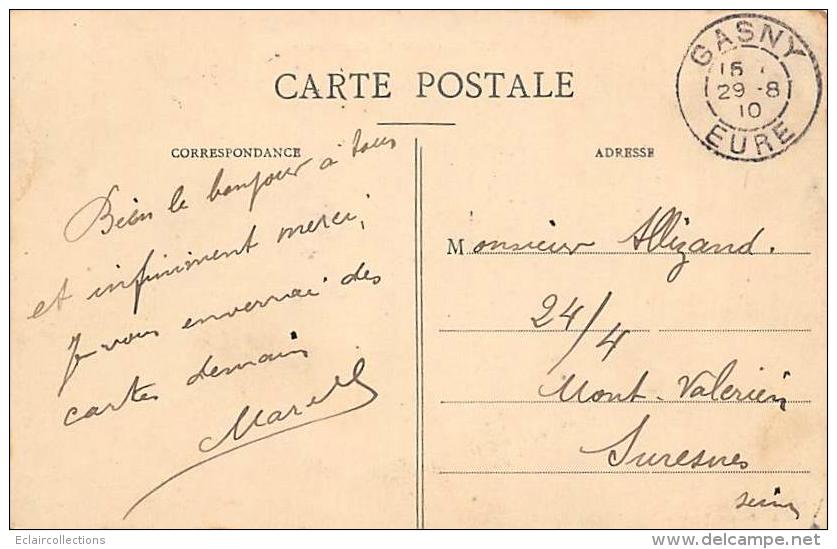 CARTE POSTALE
GASNY
15
29 -8
10
EURE
CORRESPONDANCE
Bien le bonjour à tous
et infiniment merci,
Je vous enverrai des
cartes demain
Marcel
ADRESSE
Monsieur Allizand.
24/4
Mont-Valérien
Suresnes
Seine
Eclaircollections
www.delcampe.net